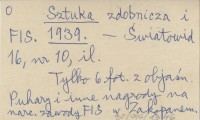 O Sztuka zdobnicza i
FIS. 1939. — Światowid
16, nr 10, il.
Tylko 6 fot. z objaśn.
Puhary i inne nagrody na
narc. zawody FIS w Zakopanem.